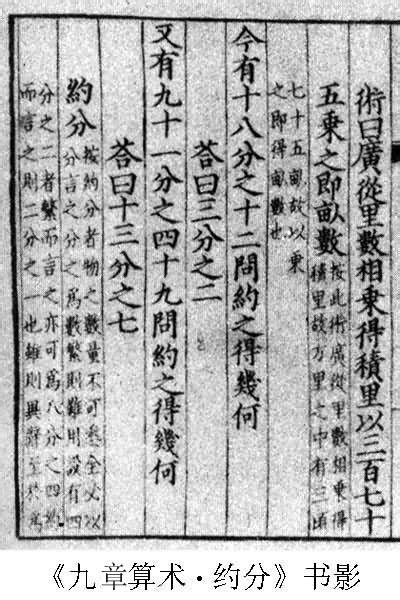 術曰廣從里數相乘得積里以三百七十
五乘之即畝數
按此術廣從里數相乘得
積里故方里之中有三頃
七十五畝故以乘
之即得畝數也
今有十八分之十二問約之得幾何
荅曰三分之二
又有九十一分之四十九問約之得幾何
荅曰十三分之七
約分
按約分者物之數量不可悉全必以
分言之分之為數繁則難用設有四
分之二者繁而言之亦可為八分之四約
而言之則二分之一也雖則異辭至於為
《九章算术·约分》书影